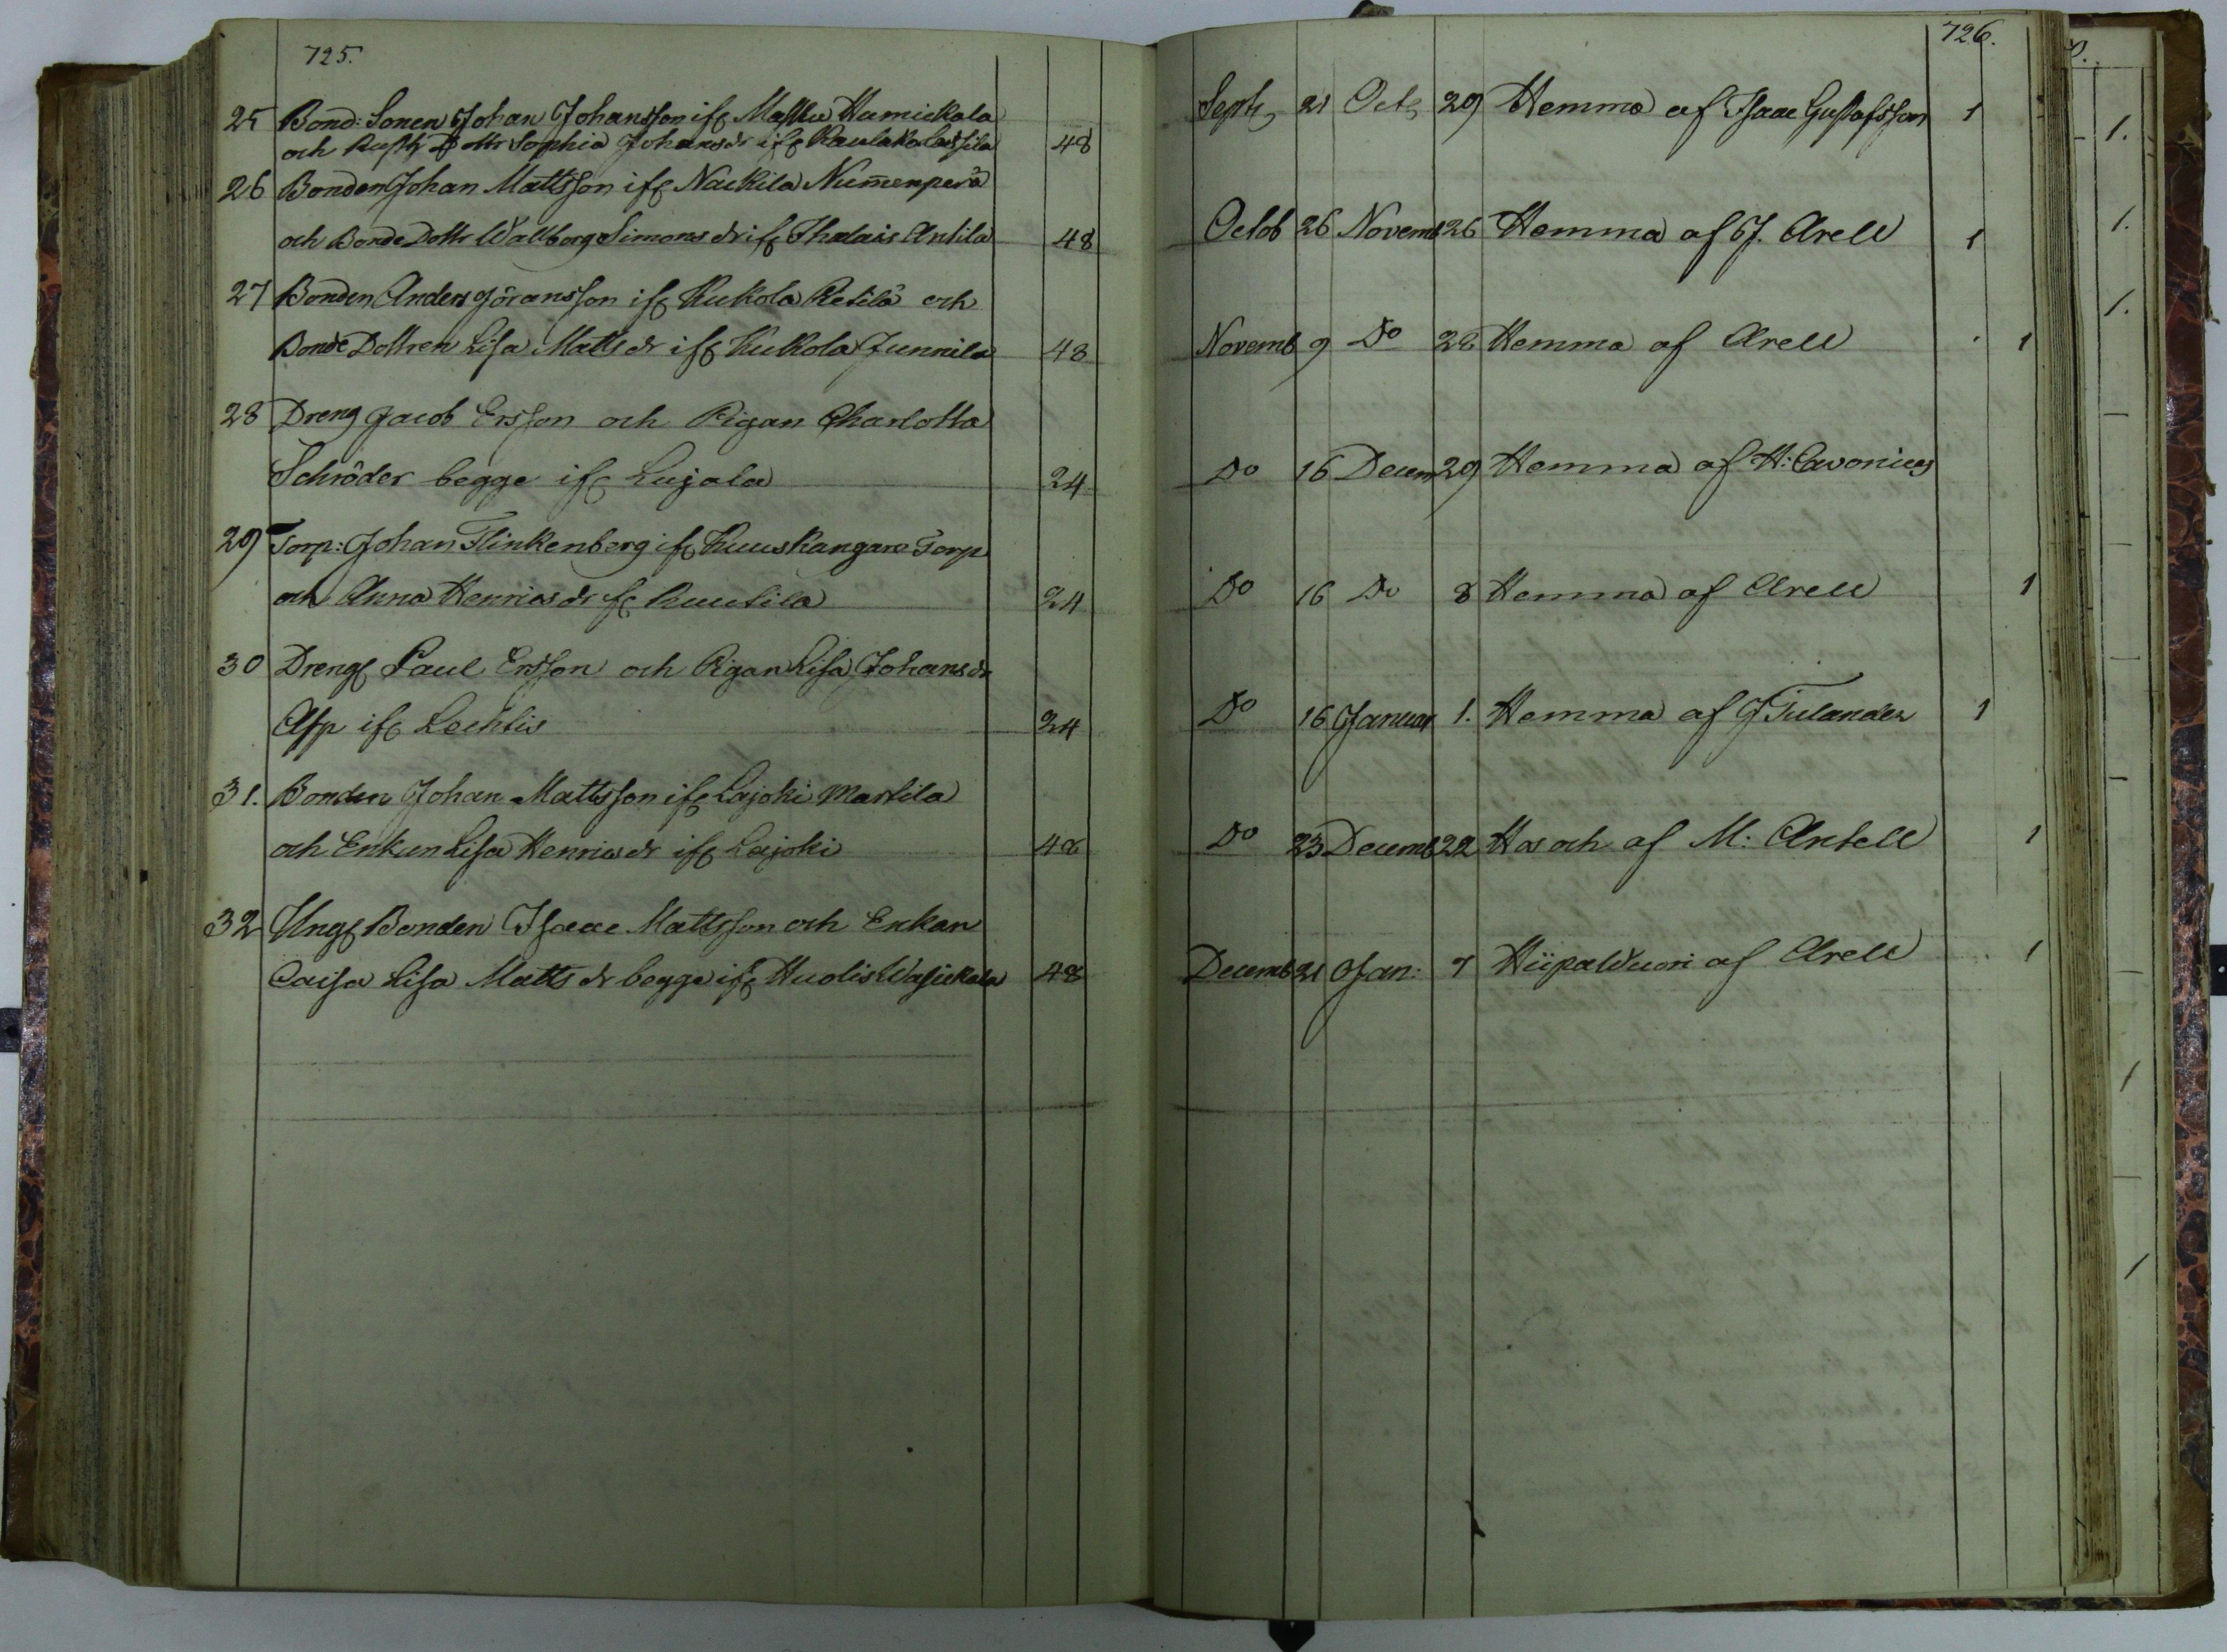 725.
25 Bond: Sonen Johan Johansson ifr Masku Humickala
och Rusth Dottr Sophia Johansdr ifr 48
26 Bonden Johan Mattsson ifr Nackila Num̄enperä
och Bonde Dottr Wallborg Simonsdr ifr Thalais Antila 48
27 Bonden Anders Göransson ifr Kukola Retilä och
Bonde Dottren Lisa Matts dr ifr Kukola Junnila 48
28 Dreng Jacob Ersson och Pigan Charlotta
Schröder begge ifr Lujala 24
29 Torp: Johan Flinkenberg ifr Kuuskangare Torp
och Anna Henricsdr ifr Kuutila 24
30 Dreng Paul Ersson och Pigan Lisa Johans dr
Asp ifr Lechtis 24
31. Bonden Johan Mattsson ifr Lajoki Martila
och Enkan Lisa Henricsdr ifr Lajoki 48
32 Ung Bonden Isaac Mattsson och Enkan
Caisa Lisa Matts dr begge ifr Huolis Wasickala 48
726.
Septr 21 Octr 29 Hemma af Isaac Gustafsson 1
Octob 26 Novemb 26 Hemma af J. Arell 1
Novemb 9 Do 28 Hemma af Arell 1
Do 16 Decem 29 Hemma af H: Cavonius
Do 16 Do 8 Hemma af Arell 1
Do 16 Januar 1. Hemma af J Tulander 1
Do 23 Decemb 22 Hos och af M: Antell 1
Decemb 21 Jan: 7 HiipaWuori af Arell 1